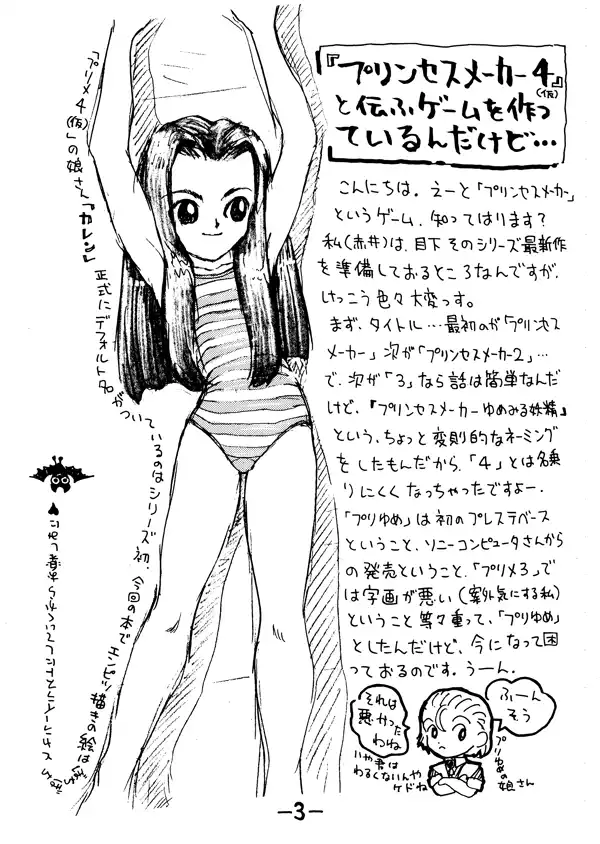 『プリンセスメーカー4』(仮)
と伝ふゲームを作っ
ているんだけど…
こんにちは。えーと「プリンセスメーカー」
というゲーム、知ってはります？
私(赤井)は、目下そのシリーズ最新作
を準備しておるところなんですが、
けっこう色々大変っす。
まず、タイトル…最初のが「プリンセス
メーカー」次が「プリンセスメーカー2」…
で、次が「3」なら話は簡単なんだ
けど、『プリンセスメーカーゆめみる妖精』
という、ちょっと変則的なネーミング
をしたもんだから、「4」とは名乗
りにくくなっちゃったですよー。
「プリゆめ」は初のプレステベース
ということ、ソニーコンピュータさんから
の発売ということ、「プリメ3」で
は字画が悪い(案外気にする私)
ということ等々重って、「プリゆめ」
としたんだけど、今になって困
っておるのです。うーん。
「プリメ4(仮)」の娘さん「カレン」
正式にデフォルト名がついているのはシリーズ初。今回の本でエンピツ描きの絵は
ふーん
そう
それは
悪かった
わね
いや君は
わるくないんや
ケドね
プリゆめの娘さん
-3-